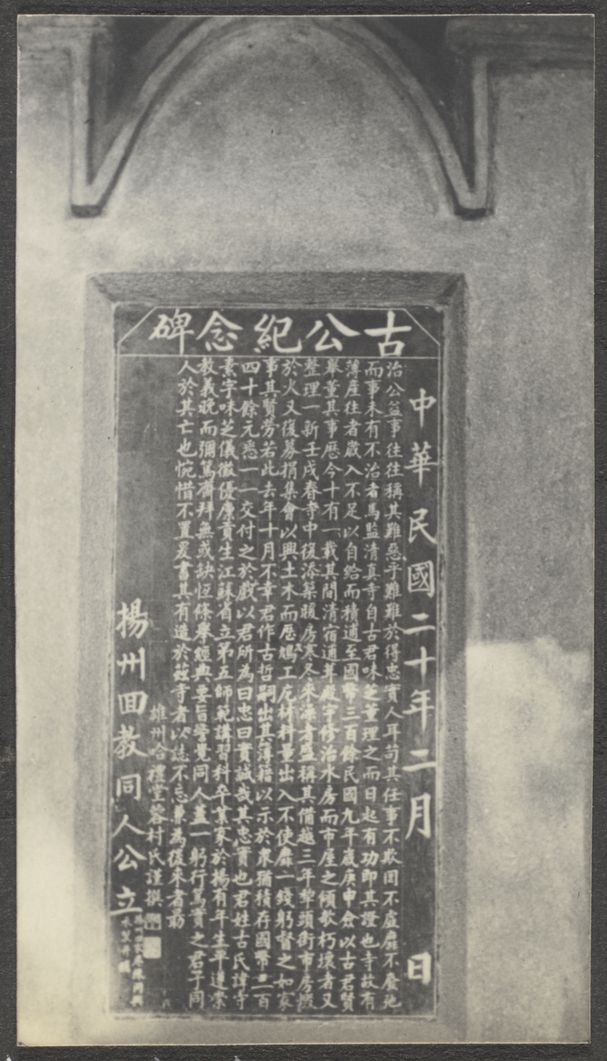 古公紀念碑
中華民國二十年二月 日
治公益事往往稱其難惡乎難難於得忠實人耳苟其任事不欺罔不虛靡不廢弛
而事未有不治者馬監清真寺自古君味芝董理之而日起有功即其證也寺故有
薄產往者歲入不足以自給而積逋至國幣三百餘民國九年歲庚申僉以古君賢
舉董其事歷今十有一載其間清宿逋葺殿宇修治水房而市屋之傾欹朽壞者又
整理一新壬戌春寺中復添築暖房寒冬來澡者盛稱其備越三年犂頭街市房燬
於火又復募捐集會以興土木而歷鳩工庀材料量出入不使靡一錢躬督之如家
事其賢勞若此去年十月不幸君作古哲嗣出其簿籍以示於衆猶積存國幣二百
四十餘元悉一一交付之於戲以君所為曰忠曰實誠哉其忠實也君姓古氏諱寺
素字味芝儀徵優廩貢生江蘇省立第五師範講習科卒業家於揚有年生平道崇
教義晚而彌篤齋拜無或缺恆條舉經典要旨警覺同人蓋一躬行篤實之君子同
人於其亡也惋惜不置爰書其有造於茲寺者以誌不忘兼為後來者勗
雄州哈禮堂蓉村氏謹撰
揚州回教同人公立